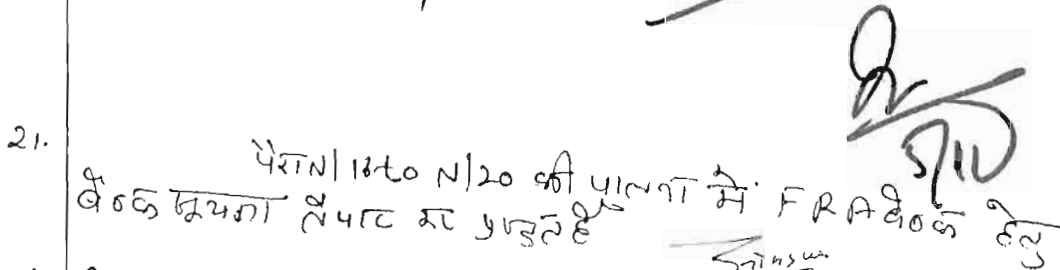 21.
पैरा N/18 to N/20 की पालना में FRA बैठक हेतु
बैठक सूचना तैयार कर प्रस्तुत है
5/10